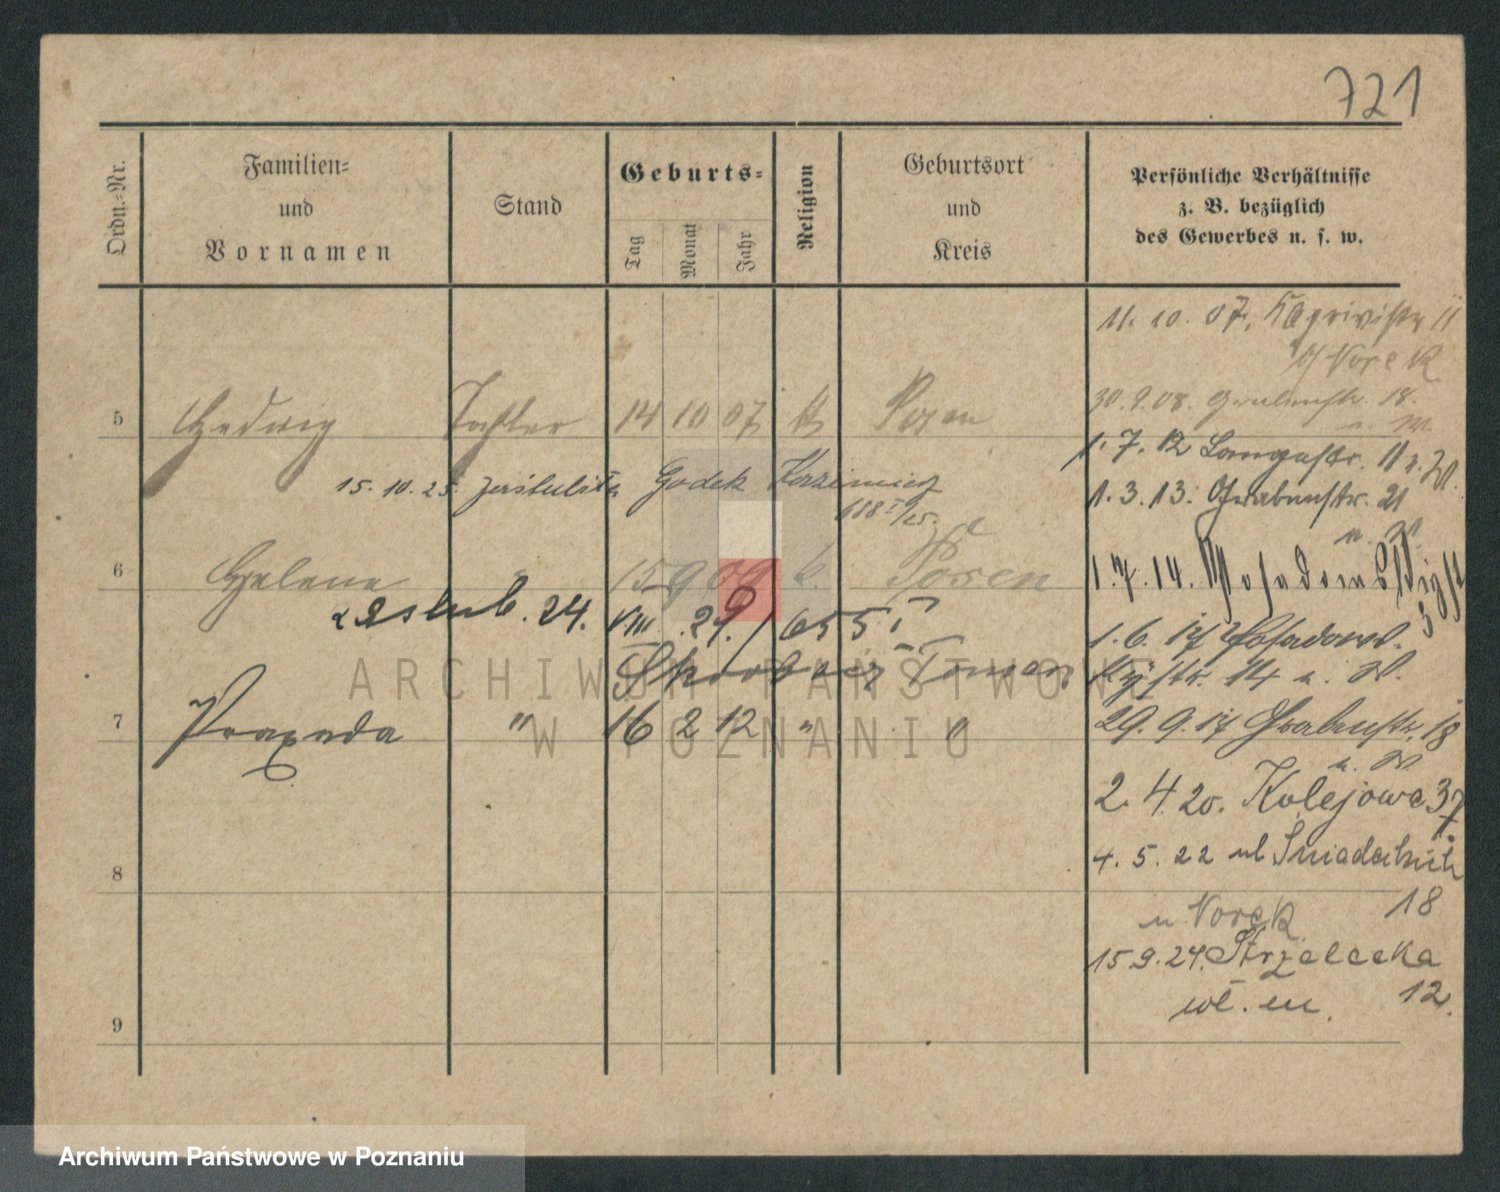 721
Ordn.-Nr.
Familien-
und
Vornamen
Stand
Geburts-
Tag
Monat
Jahr
Religion
Geburtsort
und
Kreis
Persönliche Verhältnisse
z. B. bezüglich
des Gewerbes u. s. w.
11. 10. 07.
Vorek
30. 9. 08. Grabenstr. 18.
5 Hedwig Tochter 14 10 07 Posen
1. 7. 12 Langestr. 11 a. W.
15. 10. 25 Godek Kazimierz
1. 3. 13. Grabenstr. 21
u. W.
6 Helene " 15 9 09 k. Posen
1. 7. 14.
z ślub. 24. VIII. 24. / 655 I
3
1. 6. 17
Skrobacz Roman
str. 14 u. W.
7 Praxeda " 16 2 12 " "
29. 9. 17 Grabenstr. 18
u. W.
2. 4. 20. Kolejowa 37.
4. 5. 22 ul Śniadeckich
8
18
u Vorek
15 9. 24. Strzelecka
12.
wł. m.
9
ARCHIWUM PAŃSTWOWE
W POZNANIU
Archiwum Państwowe w Poznaniu